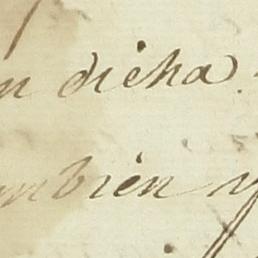 n dicha
mbien y